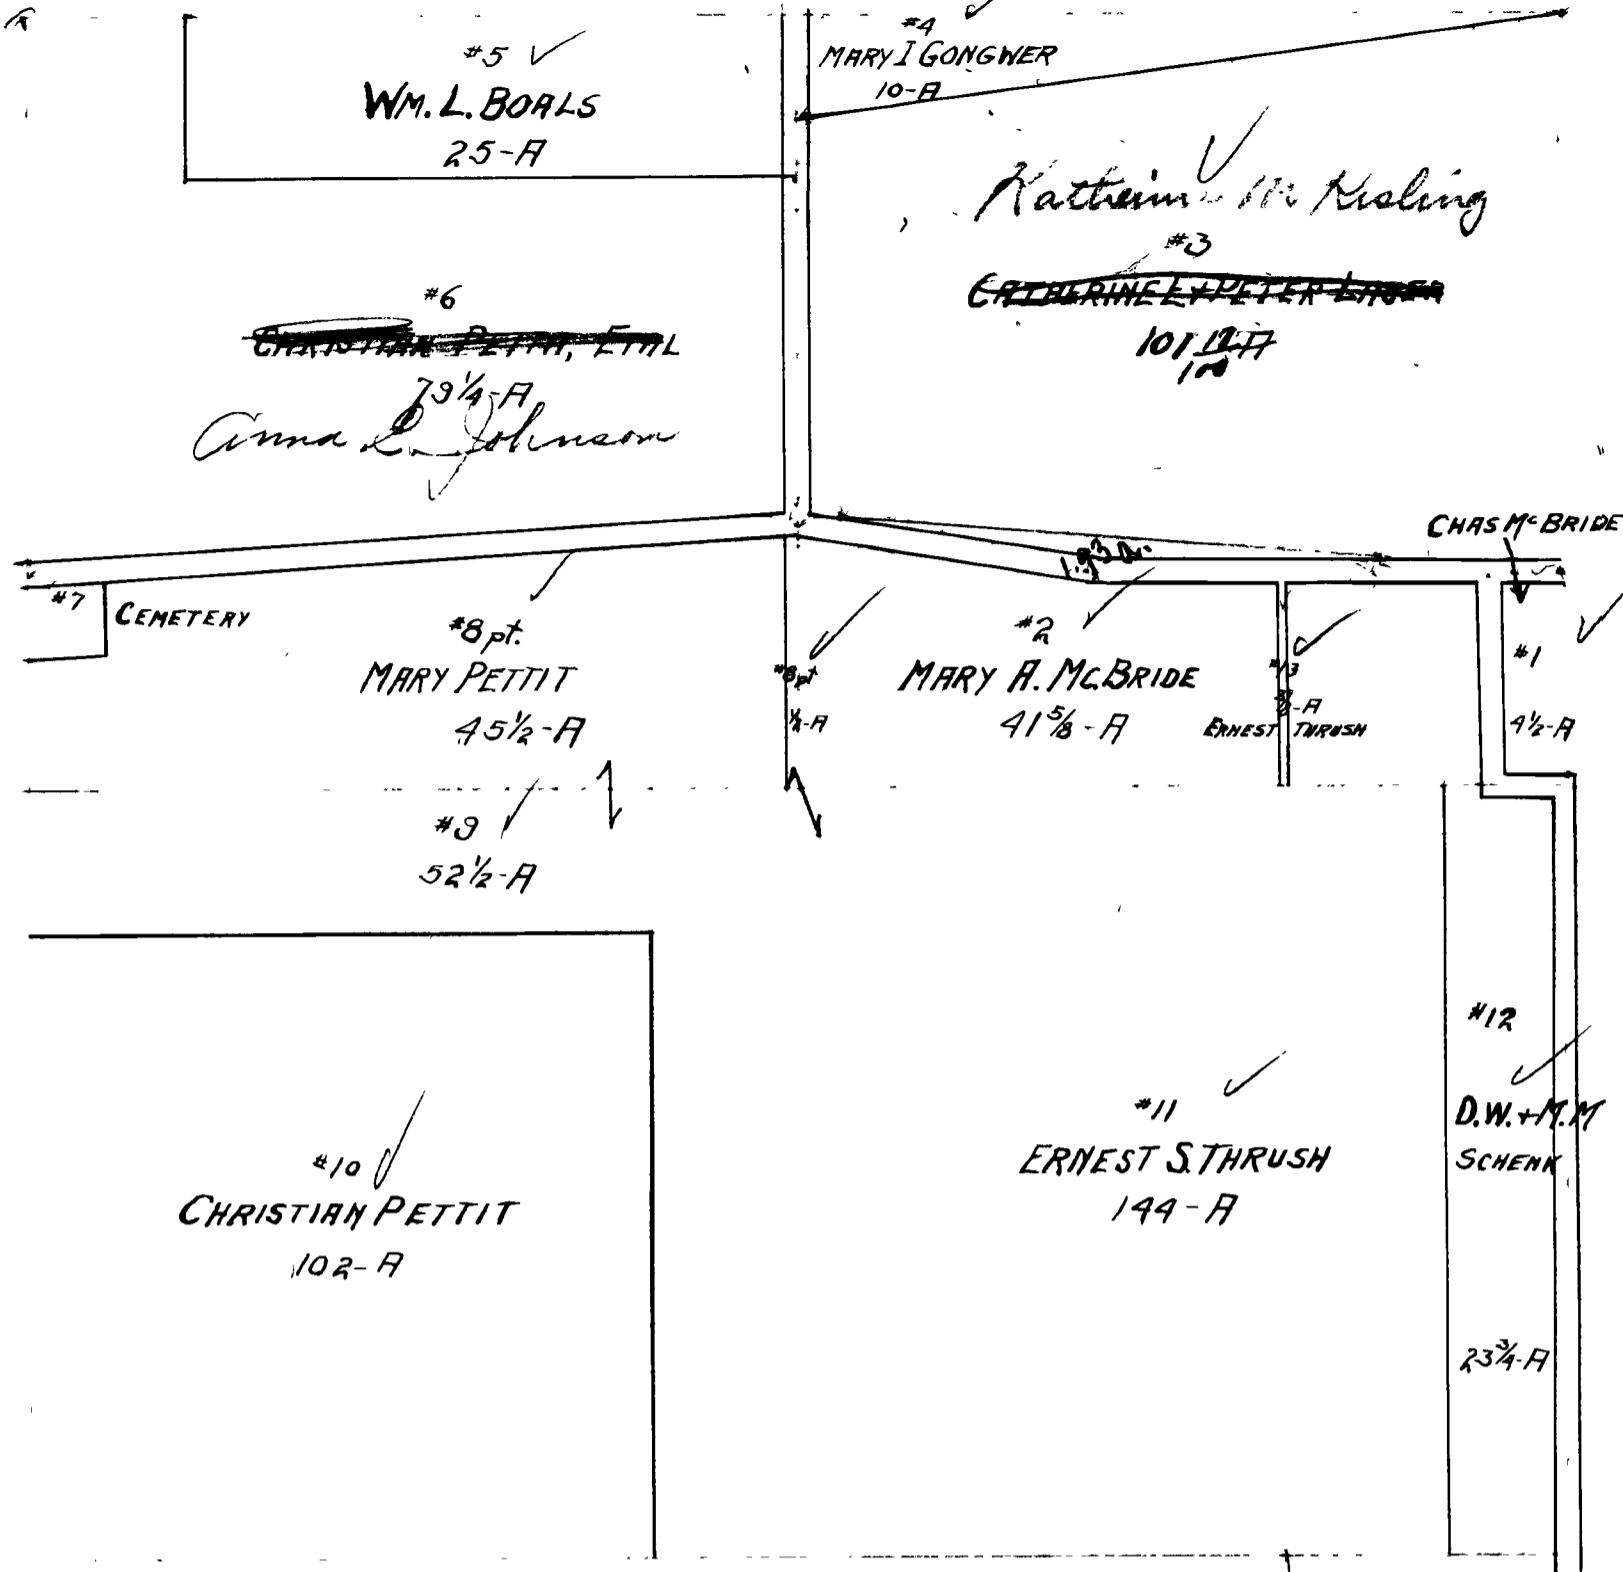 #4
MARY I GONGWER
10-A
#5
WM. L. BOALS
25-A
Kisling
#3
CATHERINE E + PETER
101 12/100 A
#6
CHRISTIAN PETTIT, ETAL
79 1/4-A
Anna L. Johnson
CHAS Mc BRIDE
#7
CEMETERY
#8 pt.
MARY PETTIT
45 1/2-A
#8 pt
1/2-A
#2
MARY A. McBRIDE
41 5/8-A
#13
-A
ERNEST THRUSH
#1
4 1/2-A
#9
52 1/2-A
#10
CHRISTIAN PETTIT
102-A
#11
ERNEST S. THRUSH
144-A
#12
D.W. + M.M
SCHENK
23 3/4-A